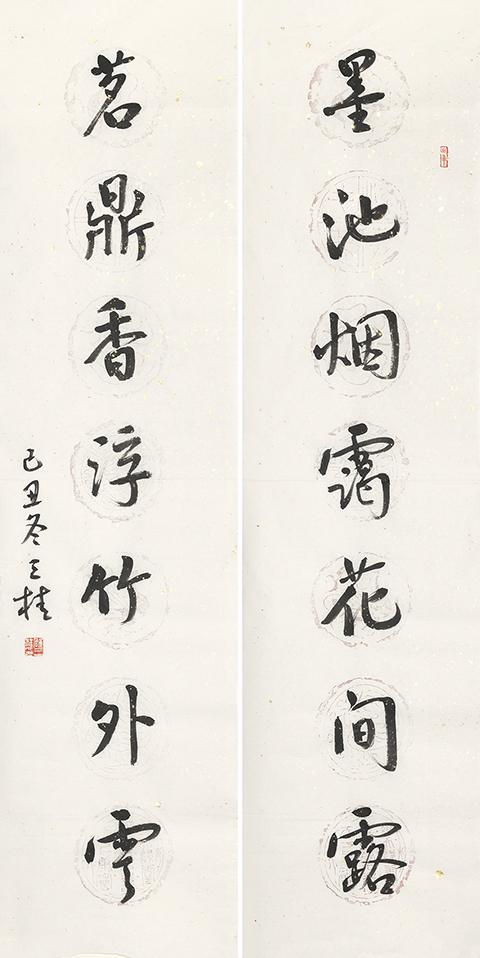 墨池烟霭花间露
茗鼎香浮竹外雲
己丑冬桂